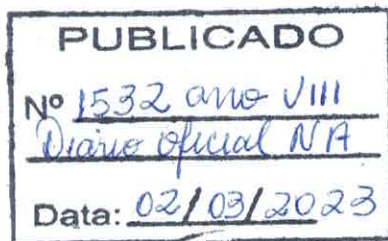 PUBLICADO
Nº 1532 ano VIII
Diário oficial NA
Data: 02/03/2023